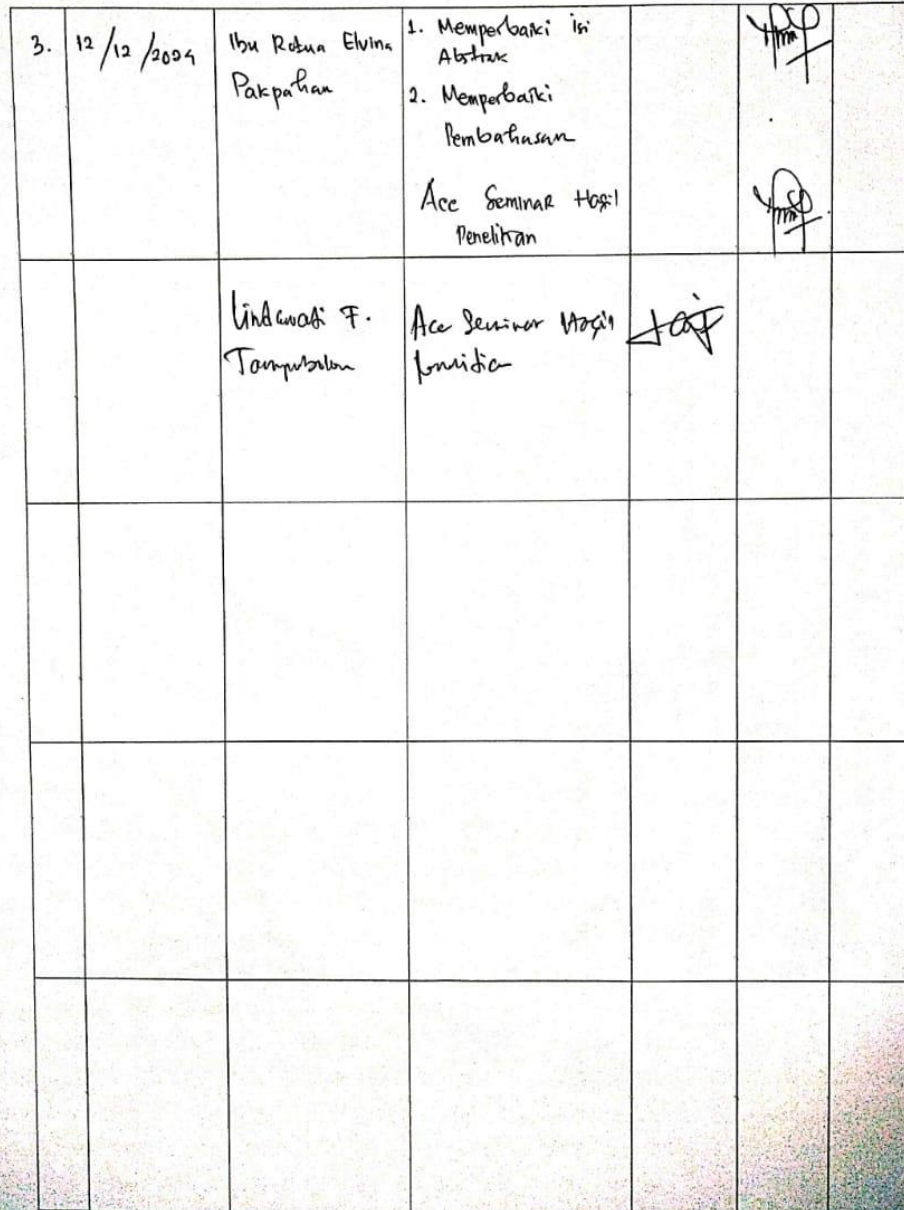 3.
12/12/2024
Ibu Rotua Elvina
Pakpahan
1. Memperbaiki isi
Abstrak
2. Memperbaiki
Pembahasan
Acc Seminar Hasil
Penelitian
Lindawati F.
Tampubolon
Acc Seminar Hasil